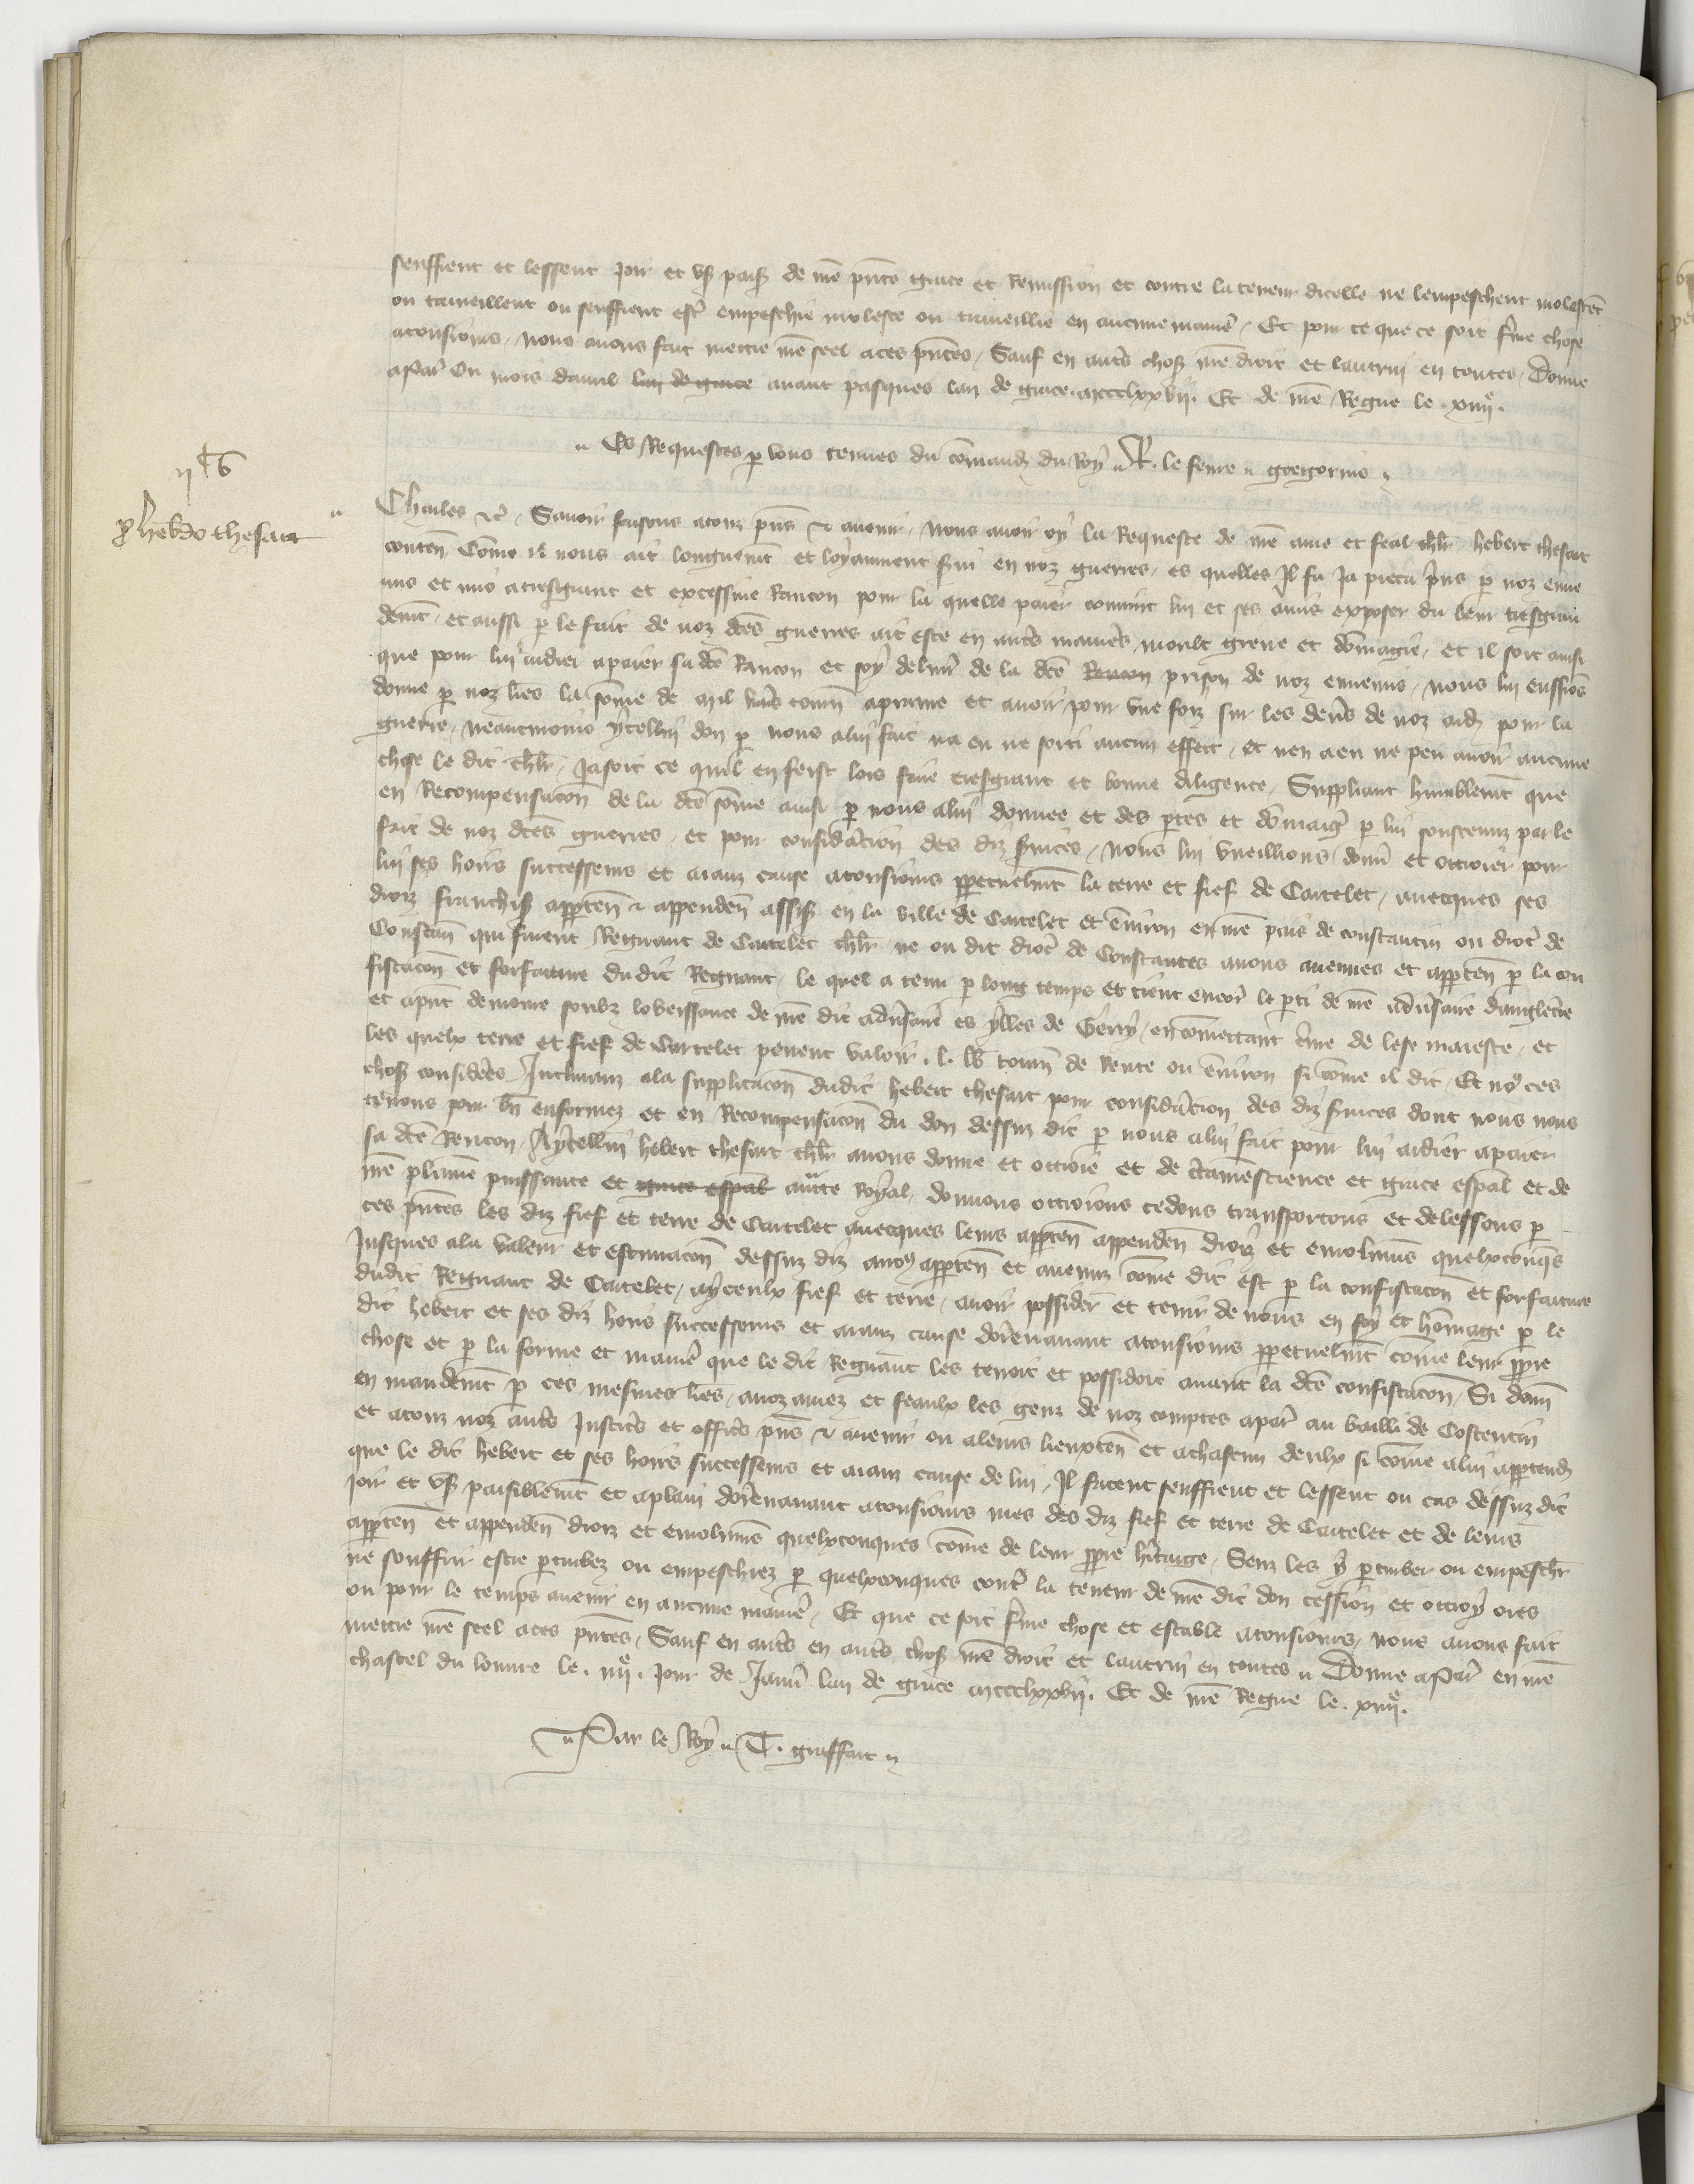 seuffrent et lessent joir et us paisi de nre pnte grace et Remission et contre la teneur dicelle ne lempeschent molestent
ou traveillent ou seuffrent estre empeschie moleste ou traveillie en aucune maniere. Et pour ce que ce soit ferme chose
atousiours. Nous avons fait mettre nre seel a ces pntes. Sauf en autres choses nre droit et lautruy en toutes. Donne
a Paris Ou mois davril lan de grace avant pasques lan de grace mccclxxvij. Et de nre Regne le xiiije.
Es Requestes par vous tenues du comand du Roy. R. le fevre. gregorius
iiCvi
pro hebto thesart
Charles etc. Savoir faisons a touz pns et avenir. Nous avoir oy la Requeste de nre ame et feal chlr hebert thesart
conten Come il nous ait longuemt et loyaument servi en noz guerres. es quelles Il fu Ja pieca prins par noz enne
mis et mis a tresgrant et excessive Rancon pour la quelle paier convint lui et ses amis exposer du leur tresgran
demt. et aussi par le fait de noz dces guerres ait este en autres manieres moult greve et domagie. et il soit ainsi
que pour lui aidier a paier sa dce Rancon et soy delivrer de la dce Rancon prison de noz ennemis. Nous lui eussions
donne par noz lres la some de mil frans tourn a prenre et avoir pour une foiz sur les deniers de noz aides pour la
guerre. Neantmoins ycellui don par nous a lui fait na eu ne sorti aucun effect. et nen a eu ne peu avoir aucune
chose le dit chlr. Jasoit ce quil en feist lors faire tresgrant et bonne diligence. Suppliant humblemt que
en Recompensacon de la dce some ainsi par nous a lui donnee et des pertes et domaiges par lui soustenuz par le
fait de noz dces guerres. et pour consideracion des diz services. Nous lui vueillions donner et ottroier pour
lui ses hoirs successeurs et aians cause a tousiours perpetuelmt la terre et fief de Cartelet. avecques ses
droiz franchises apparten et appenden assises en la ville de Cartelet et environ en nre pais de constantin ou dioc de
Constan qui furent Regnaut de Cartelet chlr ne ou dit dioc de Constances a nous avenues et apparten par la con
fiscacon et forfaiture du dit Regnaut. le quel a tenu par long temps et tient encore le parti de nre adversaire dangleterre
et a pnt demoure soubz lobeissance de nre dit adversaire es ylles de Gersy. en comettant crime de lese majeste. et
les quelx terre et fief de Cartelet pevent valoir. l. lb tourn de Rente ou environ si come il dit. Et nous ces
choses considerees Inclinanz a la supplicacon dudit hebert thesart pour consideracion des diz services dont nous nous
tenons pour bn enformez et en Recompensacon du don dessuz dit par nous a lui fait pour lui aidier a paier
sa dce Rencon. A ycellui hebert thesart chlr avons donne et ottroie et de certaine science et grace espal et de
nre plaine puissance et grace espal auctorite Royal. donnons ottroions cedons transportons et delessons par
ces pntes les diz fief et terre de Cartelet avecques leurs apparten appenden droiz et emolumens quelxconques
Jusques a la valeur et estimacon dessuz diz a nous apparten et avenuz come dit est par la confiscacon et forfaiture
dudit Regnaut de Cartelet. a yceulx fief et terre. avoir possider et tenir de nous en foy et homage par le
dit hebert et ses diz hoirs successeurs et aianz cause dorenavant a tousiours perpetuelmt come leur propre
chose et par la forme et maniere que le dit Regnaut les tenoit et possidoit avant la dce confiscacon. Si donn
en mandemt par ces mesmes lres. a noz amez et feaulx les gens de noz comptes a paris au bailli de Costentin
et a touz noz autres Justiciers et officiers pns et avenir ou a leurs lieuxten et a chascun deulx si come a lui appartendra
que le dit hebert et ses hoirs successeurs et aianz cause de lui. Il facent seuffrent et lessent ou cas dessuz dit
joir et user paisiblemt et a plain dorenavant a tousiours mes des diz fief et terre de Cartelet et de leurs
apparten et appenden droiz et emolumens quelxconques come de leur propre heritaige. Senz les y perturber ou empescher
ne souffrir estre perturbez ou empeschiez par quelxconques contre la teneur de nre dit don cession et ottroy ores
ou pour le temps avenir en aucune maniere. Et que ce soit ferme chose et estable a tousiours. nous avons fait
mettre nre seel a ces pntes. Sauf en autres en autres choses nre droit et lautruy en toutes. Donne a Paris en nre
chastel du louvre le. iiije. jour de Janvier lan de grace mccclxxvij. Et de nre Regne le. xiiije.
Par le Roy. T. graffart